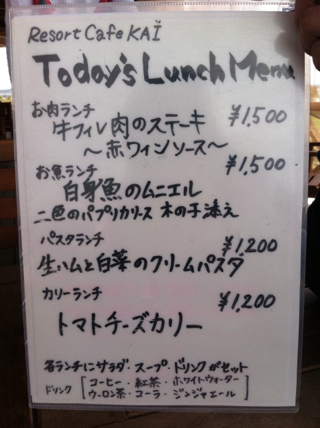 Resort Cafe KAĬ
Today's Lunch Menu
お肉ランチ ¥1,500
牛フィレ肉のステーキ
～赤ワインソース～
お魚ランチ ¥1,500
白身魚のムニエル
二色のパプリカソース 木の子添え
パスタランチ ¥1,200
生ハムと白菜のクリームパスタ
カリーランチ ¥1,200
トマトチーズカリー
各ランチにサラダ・スープ・ドリンクがセット
ドリンク [コーヒー・紅茶・ホワイトウォーター
ウーロン茶・コーラ・ジンジャエール]